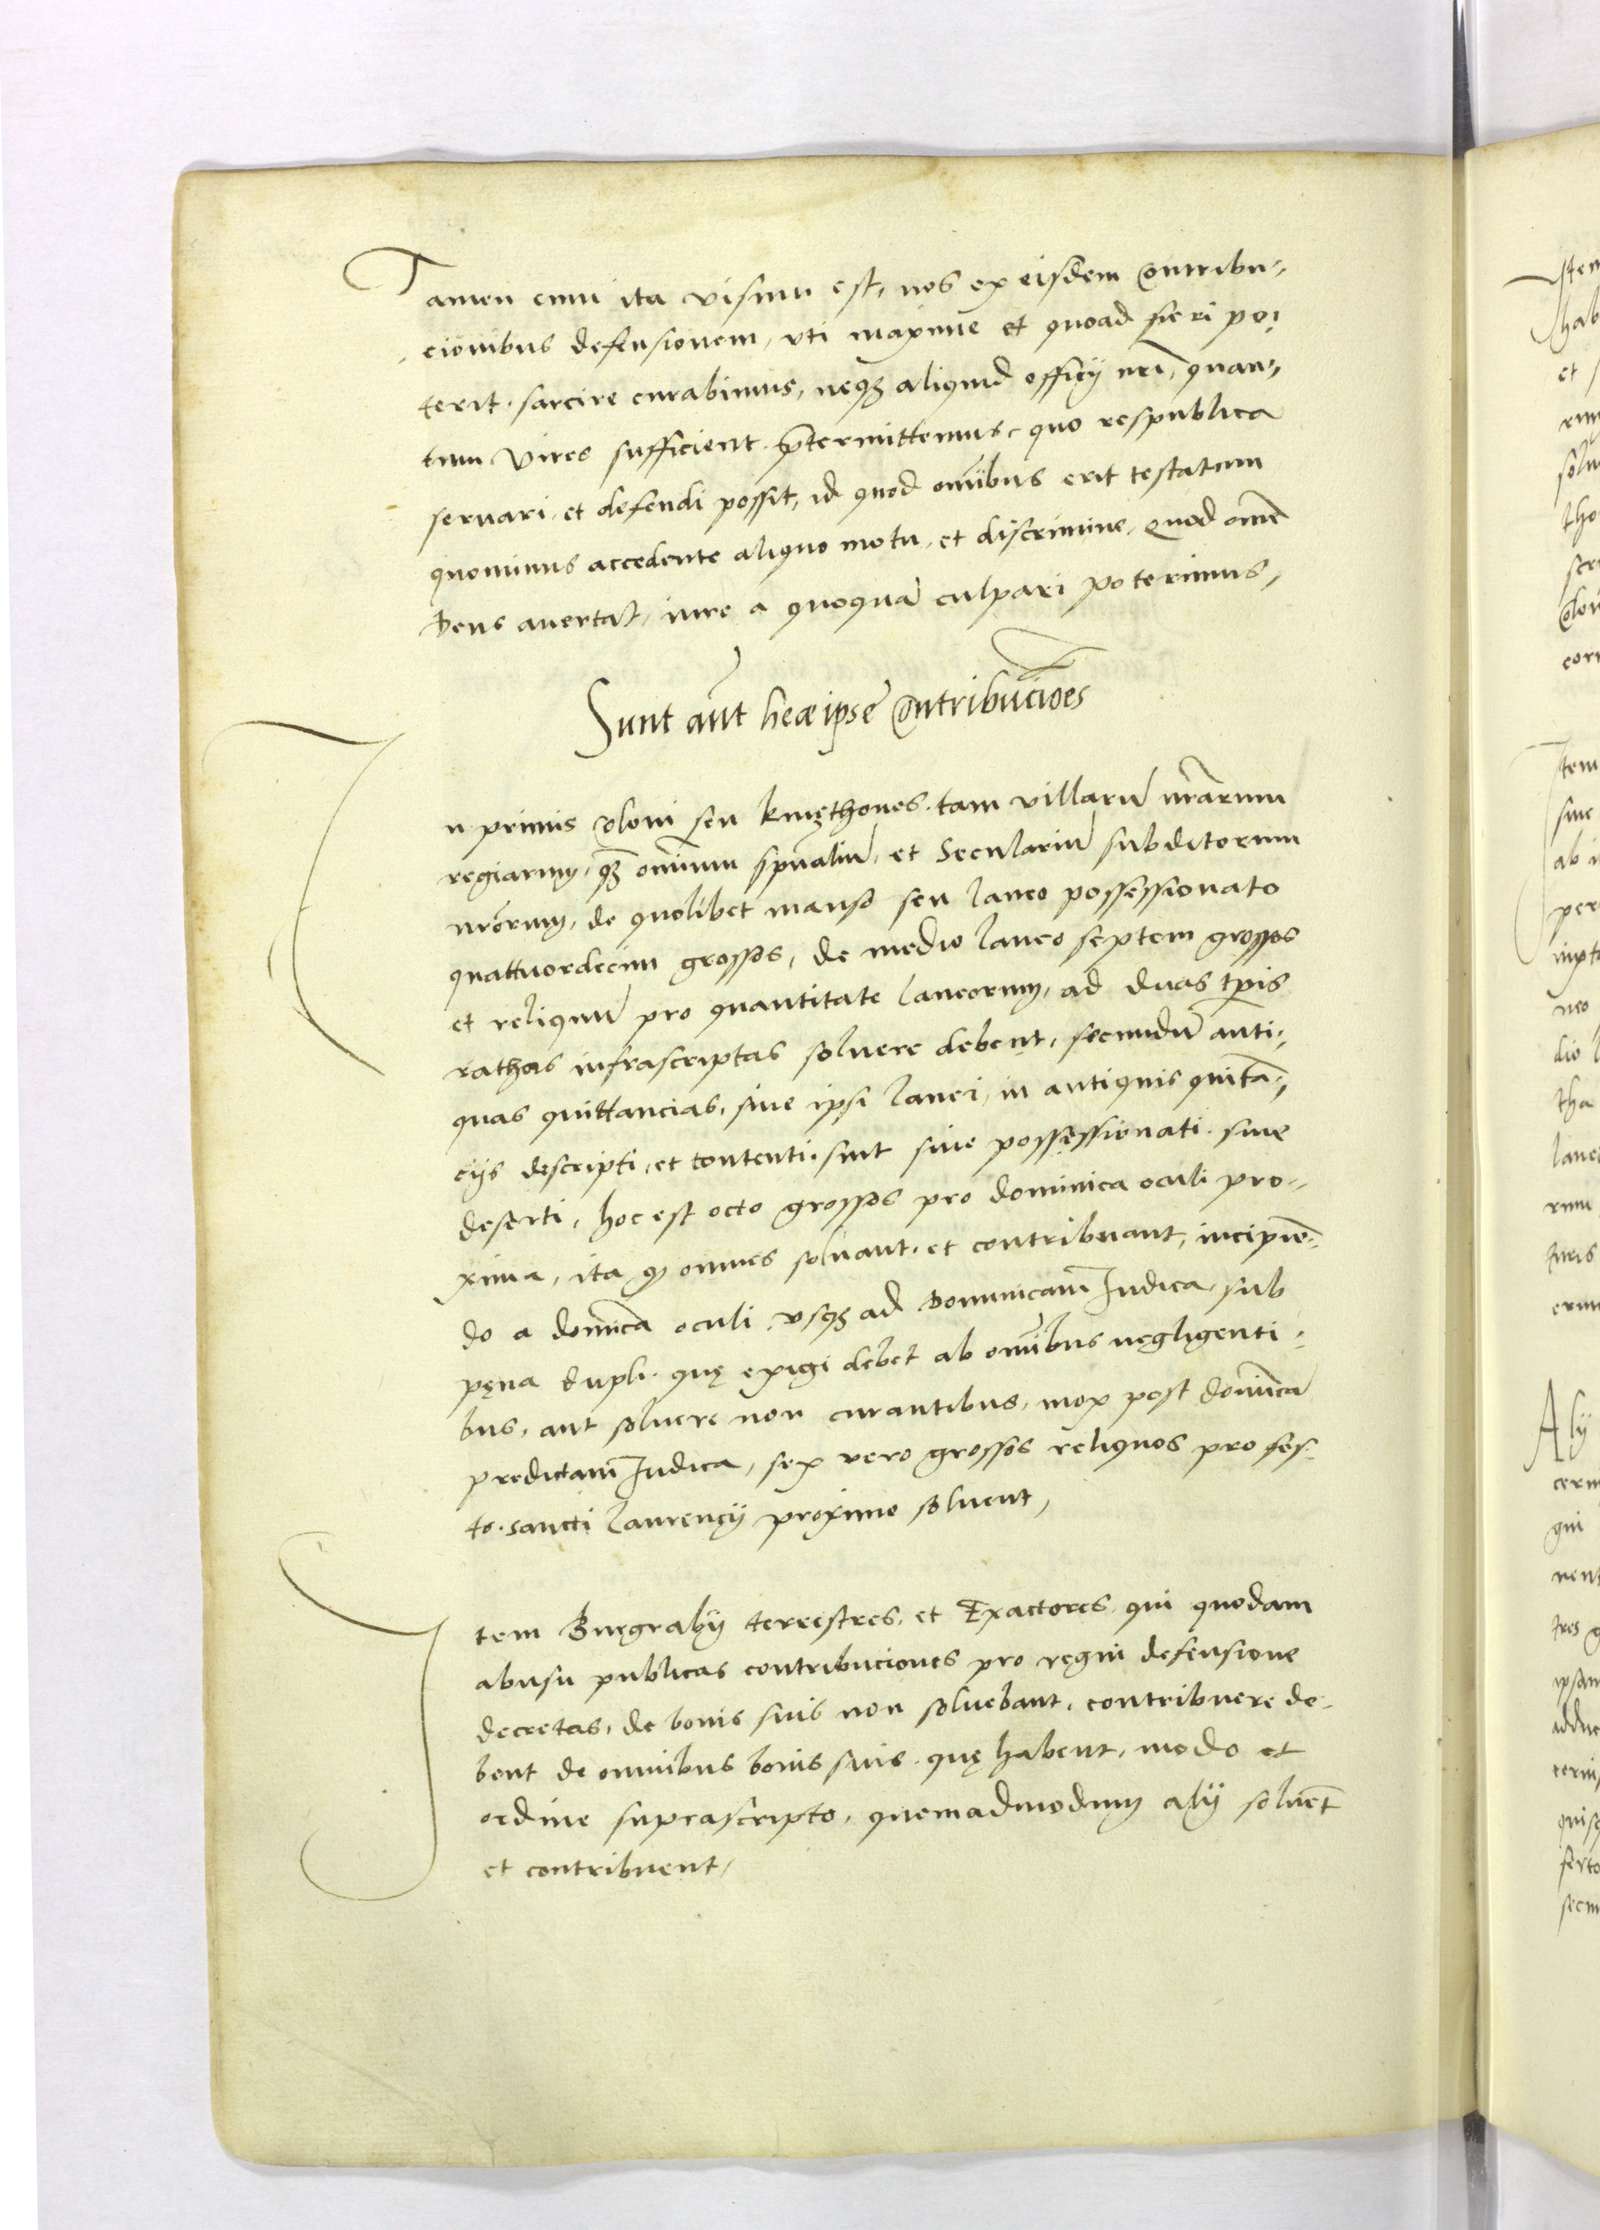 Tamen cum ita visum est, nos ex eisdem Contribu-
cionibus defensionem, vti maxime et quoad fieri po-
terit sarcire curabimus, neqʒ aliquid officij nri, quan-
tum vires sufficient ptermittemus, quo respublica
seruari et defendi possit, id quod omibus erit testatum
quominus accedente aliquo motu, et discrimine, quod omē
Deus auertat, iure a quoquā culpari poterimus,
Sunt aūt heæ ipse Contribucioēs
In primis Coloni seu kmęthones tam villarū nrārum
regiarum, qʒ omnium spūaliū, et Seculariū subditorum
nrorum, de quolibet manso seu laneo possessionato
quattuordecim grossos, de medio laneo septem grossos
et reliquū pro quantitate laneorum, ad duas tpis
rathas infrascriptas soluere debent, secundū anti-
quas quittancias, siue ipsi lanei, in antiquis quitā-
cijs descripti, et contenti sint siue possessionati siue
deserti, hoc est octo grossos pro dominica oculi pro-
xima, ita qʒ omnes soluant et contribuant, incipiē-
do a domica oculi vsqʒ ad Dominicam Iudica, sub
pęna dupli quę exigi debet ab omibus negligenti-
bus, aut soluere non curantibus, mox post domicā
predictam Iudica, sex vero grossos reliquos pro fes-
to sancti laurencij proximo soluent,
Item Burgrabij terrestres, et Exactores, qui quodam
abusu publicas contribuciones pro regni defensione
decretas, de bonis suis non soluebant, contribuere de-
bent de omnibus bonis suis quę habent, modo et
ordine suprascripto, quemadmodum alij soluēt
et contribuent,
Item
hab
et
solu
tho
Item
siue
ab i
per
neo
dio l
tha
lane
rum
erun
Alij
cern
gni
nent
tres g
ipsam